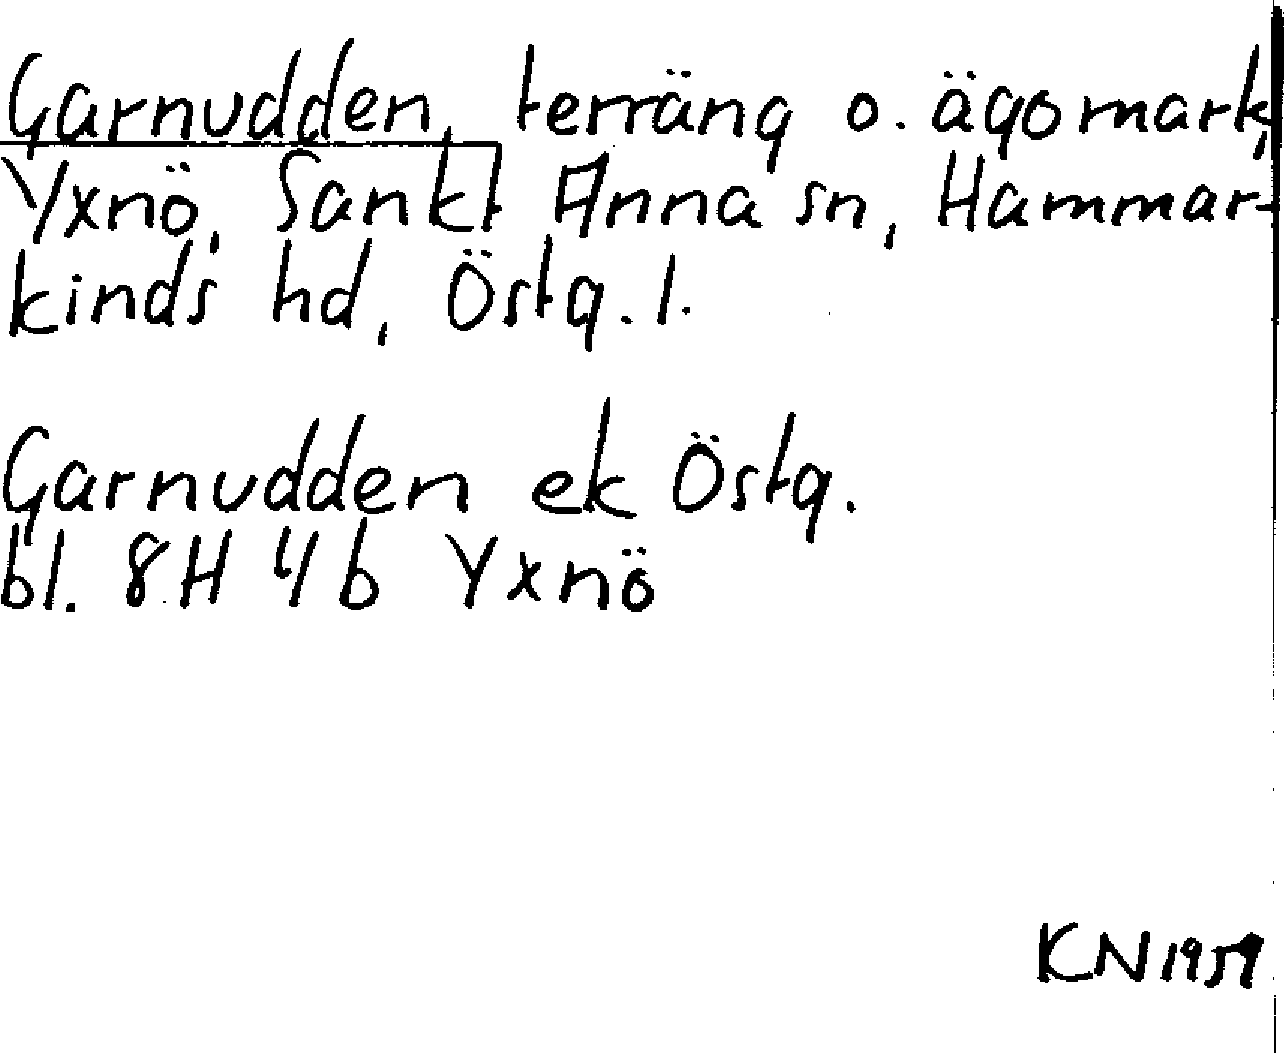 Garnudden, terräng o. ägomark,
Yxnö, Sankt Anna sn, Hammar-
kinds hd, Östg. l.
Garnudden ek Östg.
bl. 8H 4b Yxnö
KN 1959